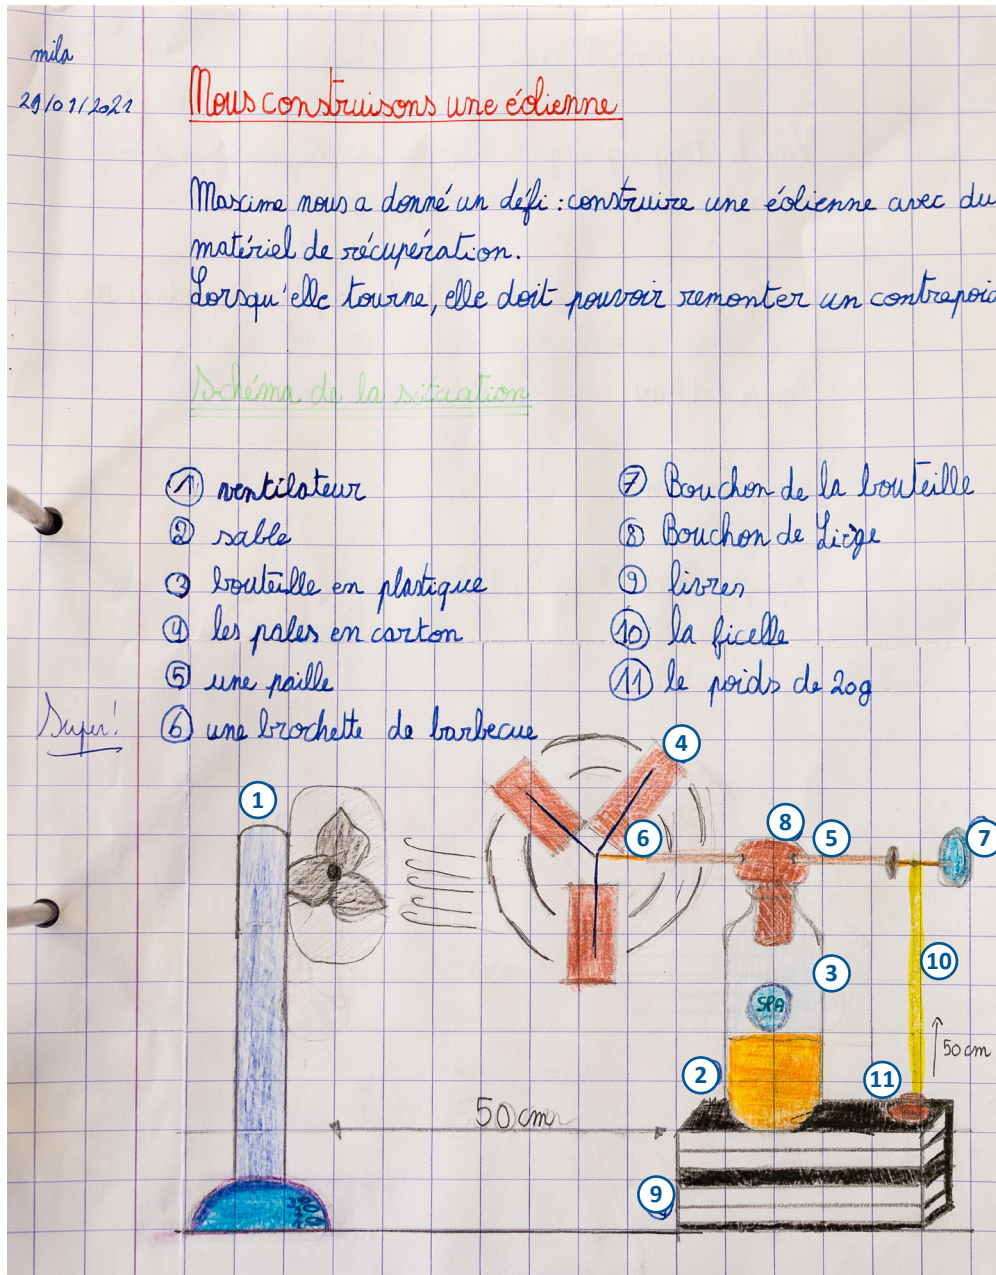 mila
29/01/2021
Nous construisons une éolienne
Maxime nous a donné un défi : construire une éolienne avec du
matériel de récupération.
Lorsqu'elle tourne, elle doit pouvoir remonter un contrepoid
Schéma de la situation
1 ventilateur
2 sable
3 bouteille en plastique
4 les pales en carton
5 une paille
6 une brochette de barbecue
7 Bouchon de la bouteille
8 Bouchon de Liège
9 livres
10 la ficelle
11 le poids de 20g
Super!
4
1
8
5
6
7
3
10
SPA
2
11
50 cm
50 cm
9